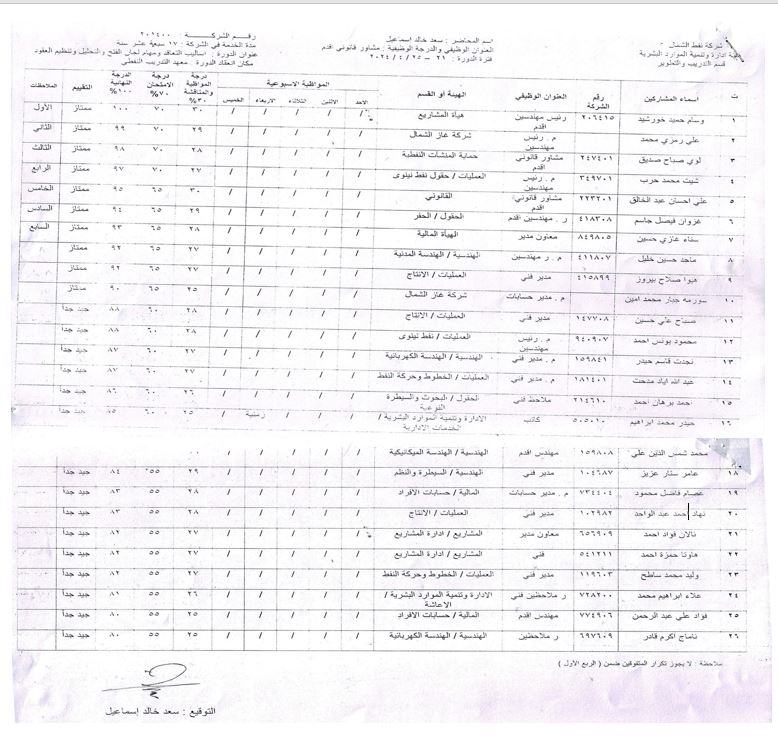 شركة نفط الشمال
ادارة وتنمية الموارد البشرية
قسم التدريب والتطوير
اسم المحاضر : سعد خالد إسماعيل
العنوان الوظيفي والدرجة الوظيفية : مشاور قانوني اقدم
فترة الدورة : ٢١ – ٢٥ / ٤ / ٢٠٢٤
رقم الشركة : ٢٠١٤٠٠
مدة الخدمة في الشركة : ١٧ سبعة عشر سنة
عنوان الدورة : اساليب التعاقد ومهام لجان الفتح والتحليل وتنظيم العقود
مكان انعقاد الدورة : معهد التدريب النفطي
ت اسماء المشاركين رقم الشركة العنوان الوظيفي الهيئة أو القسم المواظبة الاسبوعية درجة المواظبة والمناقشة ٣٠% درجة الامتحان ٧٠% الدرجة النهائية ١٠٠% التقييم الملاحظات
الاحد الاثنين الثلاثاء الاربعاء الخميس
١ وسام حميد خورشيد ٢٠٦٤١٥ رئيس مهندسين اقدم هيأة المشاريع / / / / / ٣٠ ٧٠ ١٠٠ ممتاز الأول
٢ علي رمزي محمد م . رئيس مهندسين شركة غاز الشمال / / / / / ٢٩ ٧٠ ٩٩ ممتاز الثاني
٣ لوي صباح صديق ٢٤٧٤٠١ مشاور قانوني اقدم حماية المنشآت النفطية / / / / / ٢٨ ٧٠ ٩٨ ممتاز الثالث
٤ شيت محمد حرب ٣٤٩٧٠١ م . رئيس مهندسين العمليات / حقول نفط نينوى / / / / / ٢٧ ٧٠ ٩٧ ممتاز الرابع
٥ علي احسان عبد الخالق ٢٢٣٢٠١ مشاور قانوني اقدم القانوني / / / / / ٣٠ ٦٥ ٩٥ ممتاز الخامس
٦ غزوان فيصل جاسم ٤١٨٣٠٨ ر . مهندسين اقدم الحقول / الحفر / / / / / ٢٩ ٦٥ ٩٤ ممتاز السادس
٧ سناء غازي حسين ٨٤٩٨٠٥ معاون مدير الهيأة المالية / / / / / ٢٨ ٦٥ ٩٣ ممتاز السابع
٨ ماجد حسين خليل ٤١١٨٠٧ م . ر مهندسين الهندسية / الهندسة المدنية / / / / / ٢٧ ٦٥ ٩٢ ممتاز
٩ هيوا صلاح بيروز ٤١٥٨٩٩ مدير فني العمليات / الانتاج / / / / / ٢٧ ٦٥ ٩٢ ممتاز
١٠ سورمه جبار محمد امين م . مدير حسابات شركة غاز الشمال / / / / / ٢٥ ٦٥ ٩٠ ممتاز
١١ صباح علي حسين ١٤٧٧٠٨ مدير فني العمليات / الانتاج / / / / / ٢٨ ٦٠ ٨٨ جيد جداً
١٢ محمود يونس احمد ٩٤٠٩٠٧ م . رئيس مهندسين العمليات / نفط نينوى / / / / / ٢٨ ٦٠ ٨٨ جيد جداً
١٣ نجدت قاسم حيدر ١٥٩٨٤١ م . مدير فني الهندسية / الهندسة الكهربائية / / / / / ٢٧ ٦٠ ٨٧ جيد جداً
١٤ عبد الله اياد مدحت ١٨١٤٠١ م . مدير فني العمليات / الخطوط وحركة النفط / / / / / ٢٧ ٦٠ ٨٧ جيد جداً
١٥ احمد برهان احمد ٢١٤٦١٠ ملاحظ فني الحقول / البحوث والسيطرة النوعية / / / / / ٢٦ ٦٠ ٨٦ جيد جداً
١٦ حيدر محمد ابراهيم ٥٠٥٠١٠ كاتب الادارة وتنمية الموارد البشرية / الخدمات الادارية / / / زمنية / ٢٥ ٦٠ ٨٥ جيد جداً
محمد شمس الدين علي ١٥٩٨٠٨ مهندس اقدم الهندسية / الهندسة الميكانيكية
١٨ عامر ستار عزيز ١٠٤٦٨٧ مدير فني الهندسية / السيطرة والنظم / / / / / ٢٩ ٥٥ ٨٤ جيد جداً
١٩ عصام فاضل محمود ٧٣٤٤٠٤ م . مدير حسابات المالية / حسابات الافراد / / / / / ٢٨ ٥٥ ٨٣ جيد جداً
٢٠ نهاد احمد عبد الواحد ١٠٢٩٨٢ مدير فني العمليات / الانتاج / / / / / ٢٨ ٥٥ ٨٣ جيد جداً
٢١ تالان فؤاد احمد ٦٥٦٩٠٩ معاون مدير المشاريع / ادارة المشاريع / / / / / ٢٧ ٥٥ ٨٢ جيد جداً
٢٢ هاوتا حمزة احمد ٥٤١٢١١ فني المشاريع / ادارة المشاريع / / / / / ٢٧ ٥٥ ٨٢ جيد جداً
٢٣ وليد محمد ساطح ١١٩٦٠٣ مدير فني العمليات / الخطوط وحركة النفط / / / / / ٢٧ ٥٥ ٨٢ جيد جداً
٢٤ علاء ابراهيم محمد ٧٢٨٢٠٠ ر ملاحظين فني الادارة وتنمية الموارد البشرية / الاعاشة / / / / / ٢٦ ٥٥ ٨١ جيد جداً
٢٥ فؤاد علي عبد الرحمن ٧٧٤٩٠٦ مهندس اقدم المالية / حسابات الافراد / / / / / ٢٥ ٥٥ ٨٠ جيد جداً
٢٦ ناماج اكرم قادر ٦٩٧٦٠٩ ر ملاحظين الهندسية / الهندسة الكهربائية / / / / / ٢٥ ٥٥ ٨٠ جيد جداً
ملاحظة : لا يجوز تكرار المتفوقين ضمن ( الربع الأول )
التوقيع : سعد خالد إسماعيل